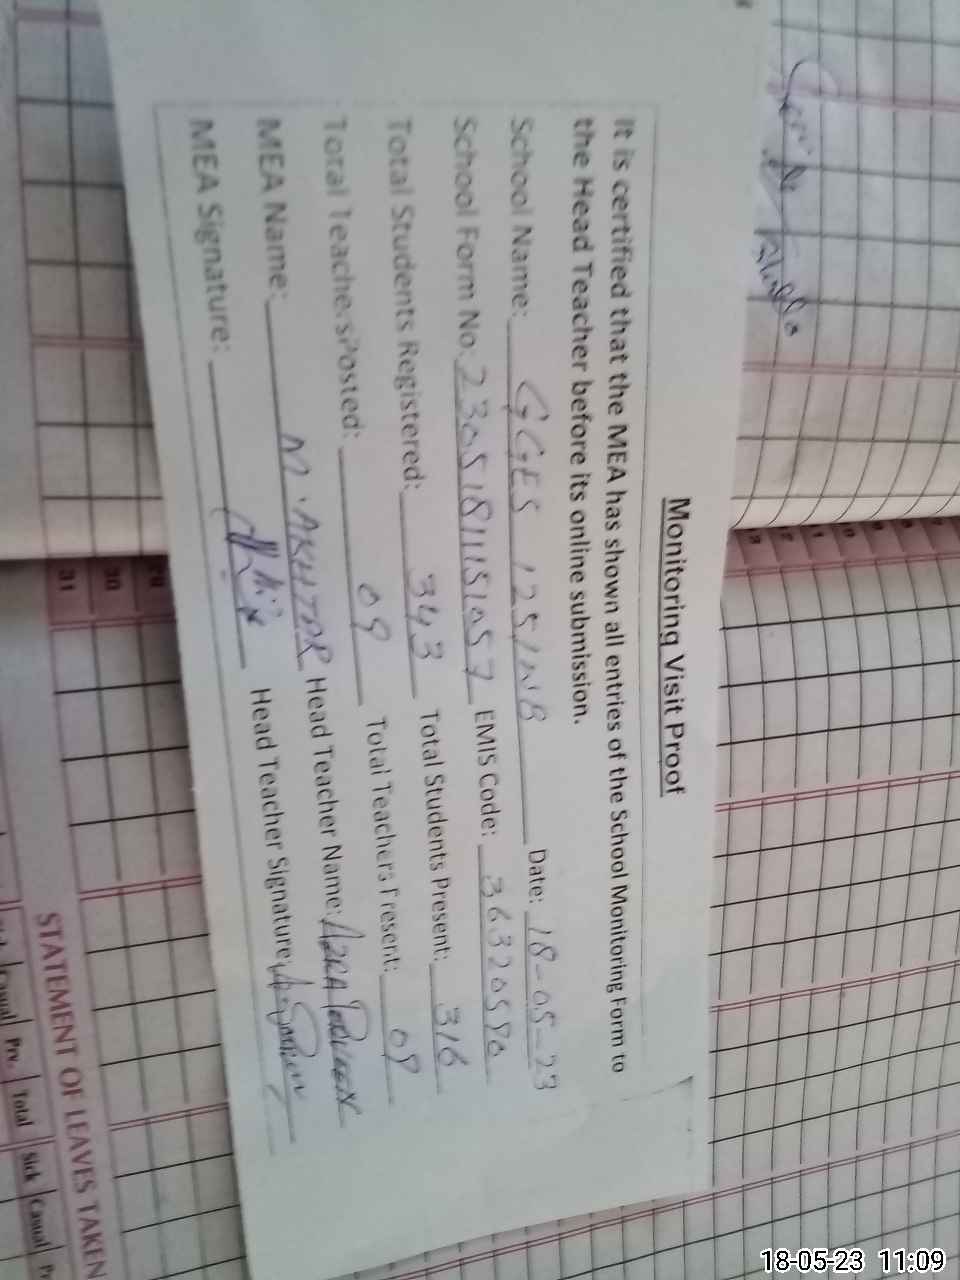 Monitoring Visit Proof
It is certified that the MEA has shown all entries of the School Monitoring Form to
the Head Teacher before its online submission.
School Name: GGES 125/NB Date: 18-05-23
School Form No: 23051811151057 EMIS Code: 36320590
Total Students Registered: 343 Total Students Present: 316
Total Teachers Posted: 09 Total Teachers Present: 09
MEA Name: M. AKHTAR Head Teacher Name: AZRA PARVEEN
MEA Signature: Head Teacher Signature:
STATEMENT OF LEAVES TAKEN
Casual Prv. Total Sick Casual
30
31
18-05-23 11:09